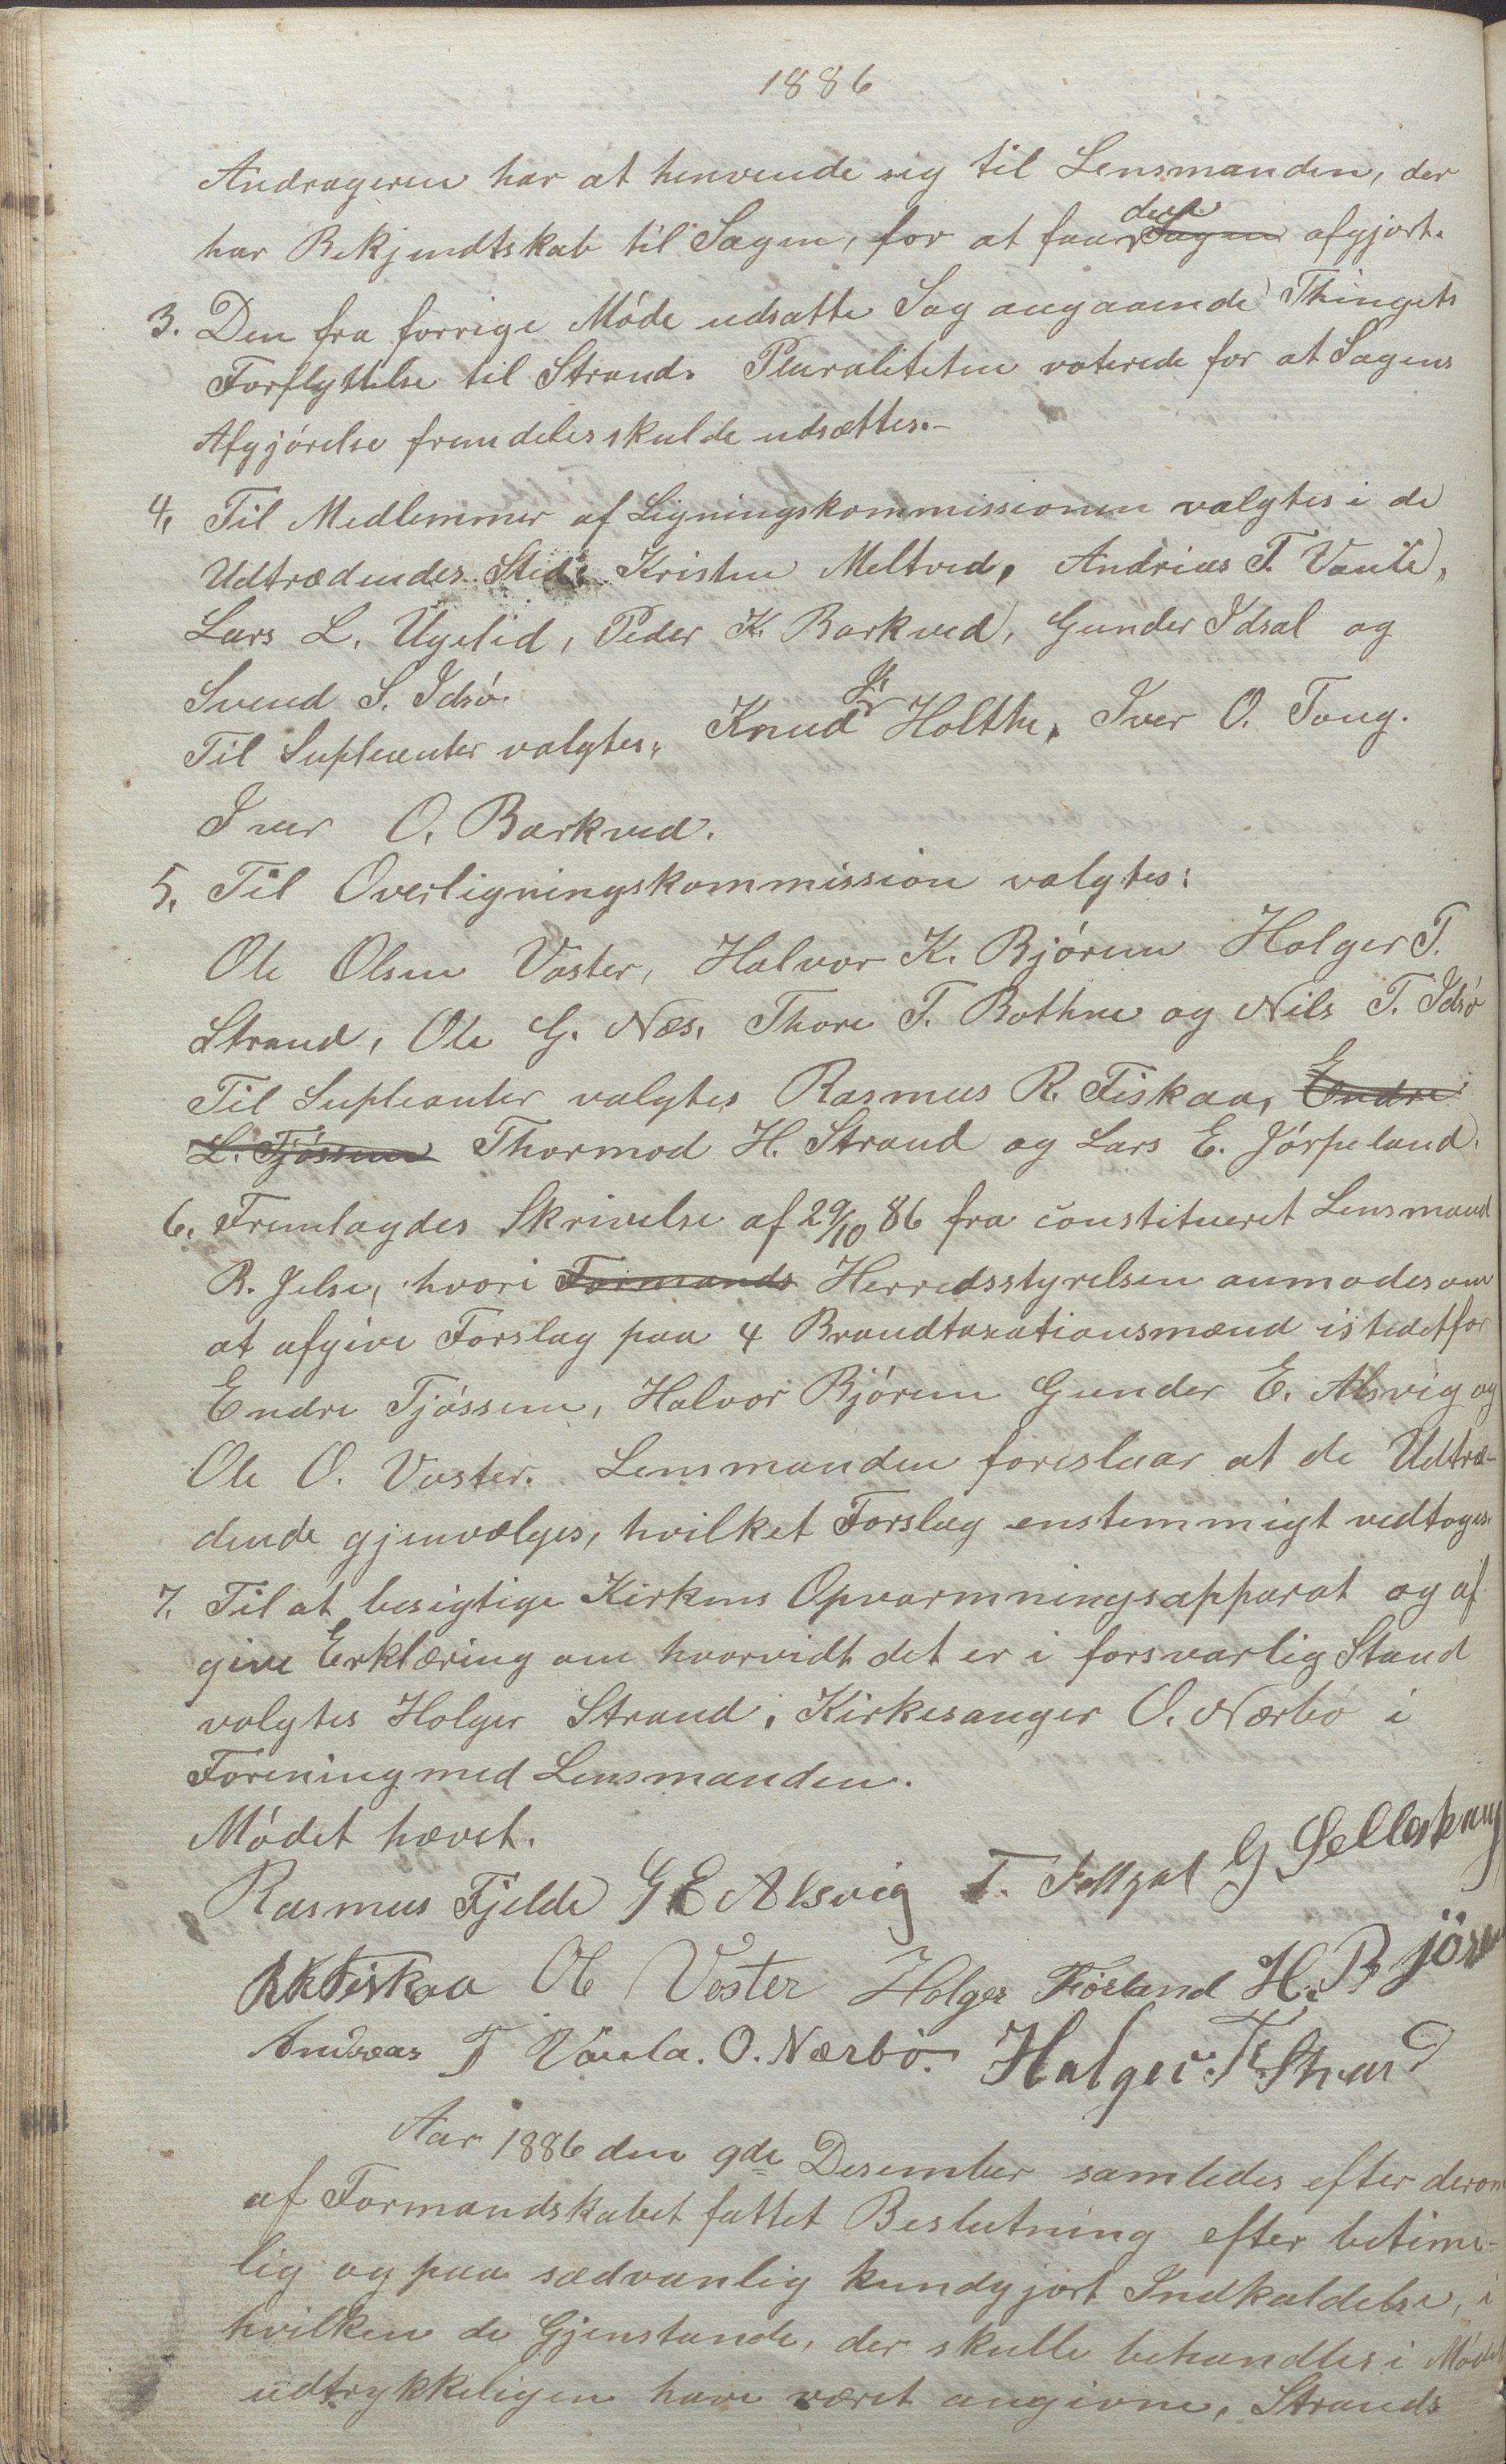 1886
Andrageren har at henvende sig til Lensmanden, der
har Bekjendtskab til Sagen, for at faa den Sagen afgjort.
3. Den fra forrige Møde udsatte Sag angaaende Thingets
Forflyttelse til Strand. Pluraliteten voterede for at Sagens
Afgjørelse fremdeles skulde udsættes.-
4. Til Medlemmer af Ligningskommissionen valgtes i de
Udtrædendes Sted: Kristen Meltved, Andreas T. Vaule,
Lars L. Ugelid, Peder K. Barkved, Gunder Idsal og
Svend S. Idsø.
Til Supleanter valgtes: Knud Holthe, Iver O. Tong.
Iver O. Barkved.
5. Til Overligningskommission valgtes:
Ole Olsen Vaster, Halvor K. Bjøren Holger T.
Strand, Ole G. Næs, Thore T. Bothne og Nils T. Idsø
Til Supleanter valgtes Rasmus R. Fiskaa, Endre
L. Tjøssem Thormod H. Strand og Lars E. Jørpeland.
6. Fremlagdes Skrivelse af 29/10 86 fra constitueret Lensmand
R. Jelse, hvori Formands Herredsstyrelsen anmodes om
at afgive Forslag paa 4 Brandtaxationsmænd istedetfor
Endre Tjøssem, Halvor Bjøren Gunder E. Alsvig og
Ole O. Vaster. Lensmanden foreslaar at de Udtræ-
dende gjenvælges, hvilket Forslag enstemmigt vedtoges.
7. Til at besigtige Kirkens Opvarmningsapparat og af
give Erklæring om hvorvidt det er i forsvarlig Stand
valgtes Holger Strand, Kirkesanger O. Nærbø i
Forening med Lensmanden.
Mødet hævet.
Rasmus Fjelde G E Alsvig T. G Selleskaug
RR Fiskaa Ol Voster Holger Førland H. Bjøren
Andreas T Vaula. O. Nærbø. Holger T. Strand
Aar 1886 den 9de Desember samledes efter derom
af Formandskabet fattet Beslutning efter betime-
lig og paa sædvanlig kundgjort Indkaldelse, i
hvilken de Gjenstande, der skulle behandles i Mødet
udtrykkeligen have været angivne, Strands